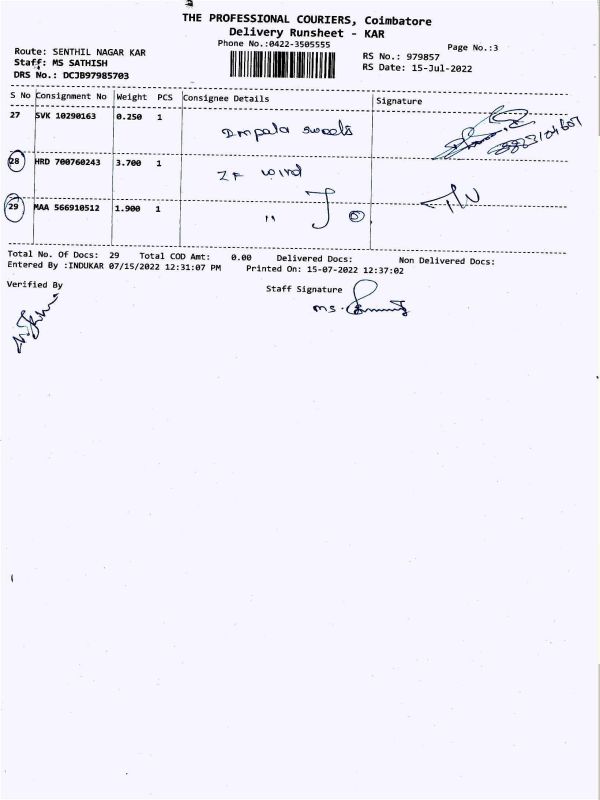 THE PROFESSIONAL COURIERS, Coimbatore
Delivery Runsheet - KAR
Phone No.:0422-3505555
Page No.:3
Route: SENTHIL NAGAR KAR
RS No.: 979857
Staff: MS SATHISH
RS Date: 15-Jul-2022
DRS No.: DCJB97985703
S No Consignment No Weight PCS Consignee Details Signature
27 SVK 10290163 0.250 1 Impala sweets
28 HRD 700760243 3.700 1 ZF wind
29 MAA 566910512 1.900 1 "
Total No. Of Docs: 29 Total COD Amt: 0.00 Delivered Docs: Non Delivered Docs:
Entered By :INDUKAR 07/15/2022 12:31:07 PM Printed On: 15-07-2022 12:37:02
Verified By
Staff Signature
ms.